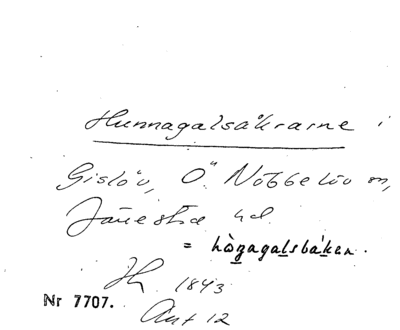 Hunnagalsåkrarne i
Gislöv, Ö. Nöbbelöv sn,
Järrestad hd.
= hòzagalsbáken.
1843
Nr 7707.
Akt 12